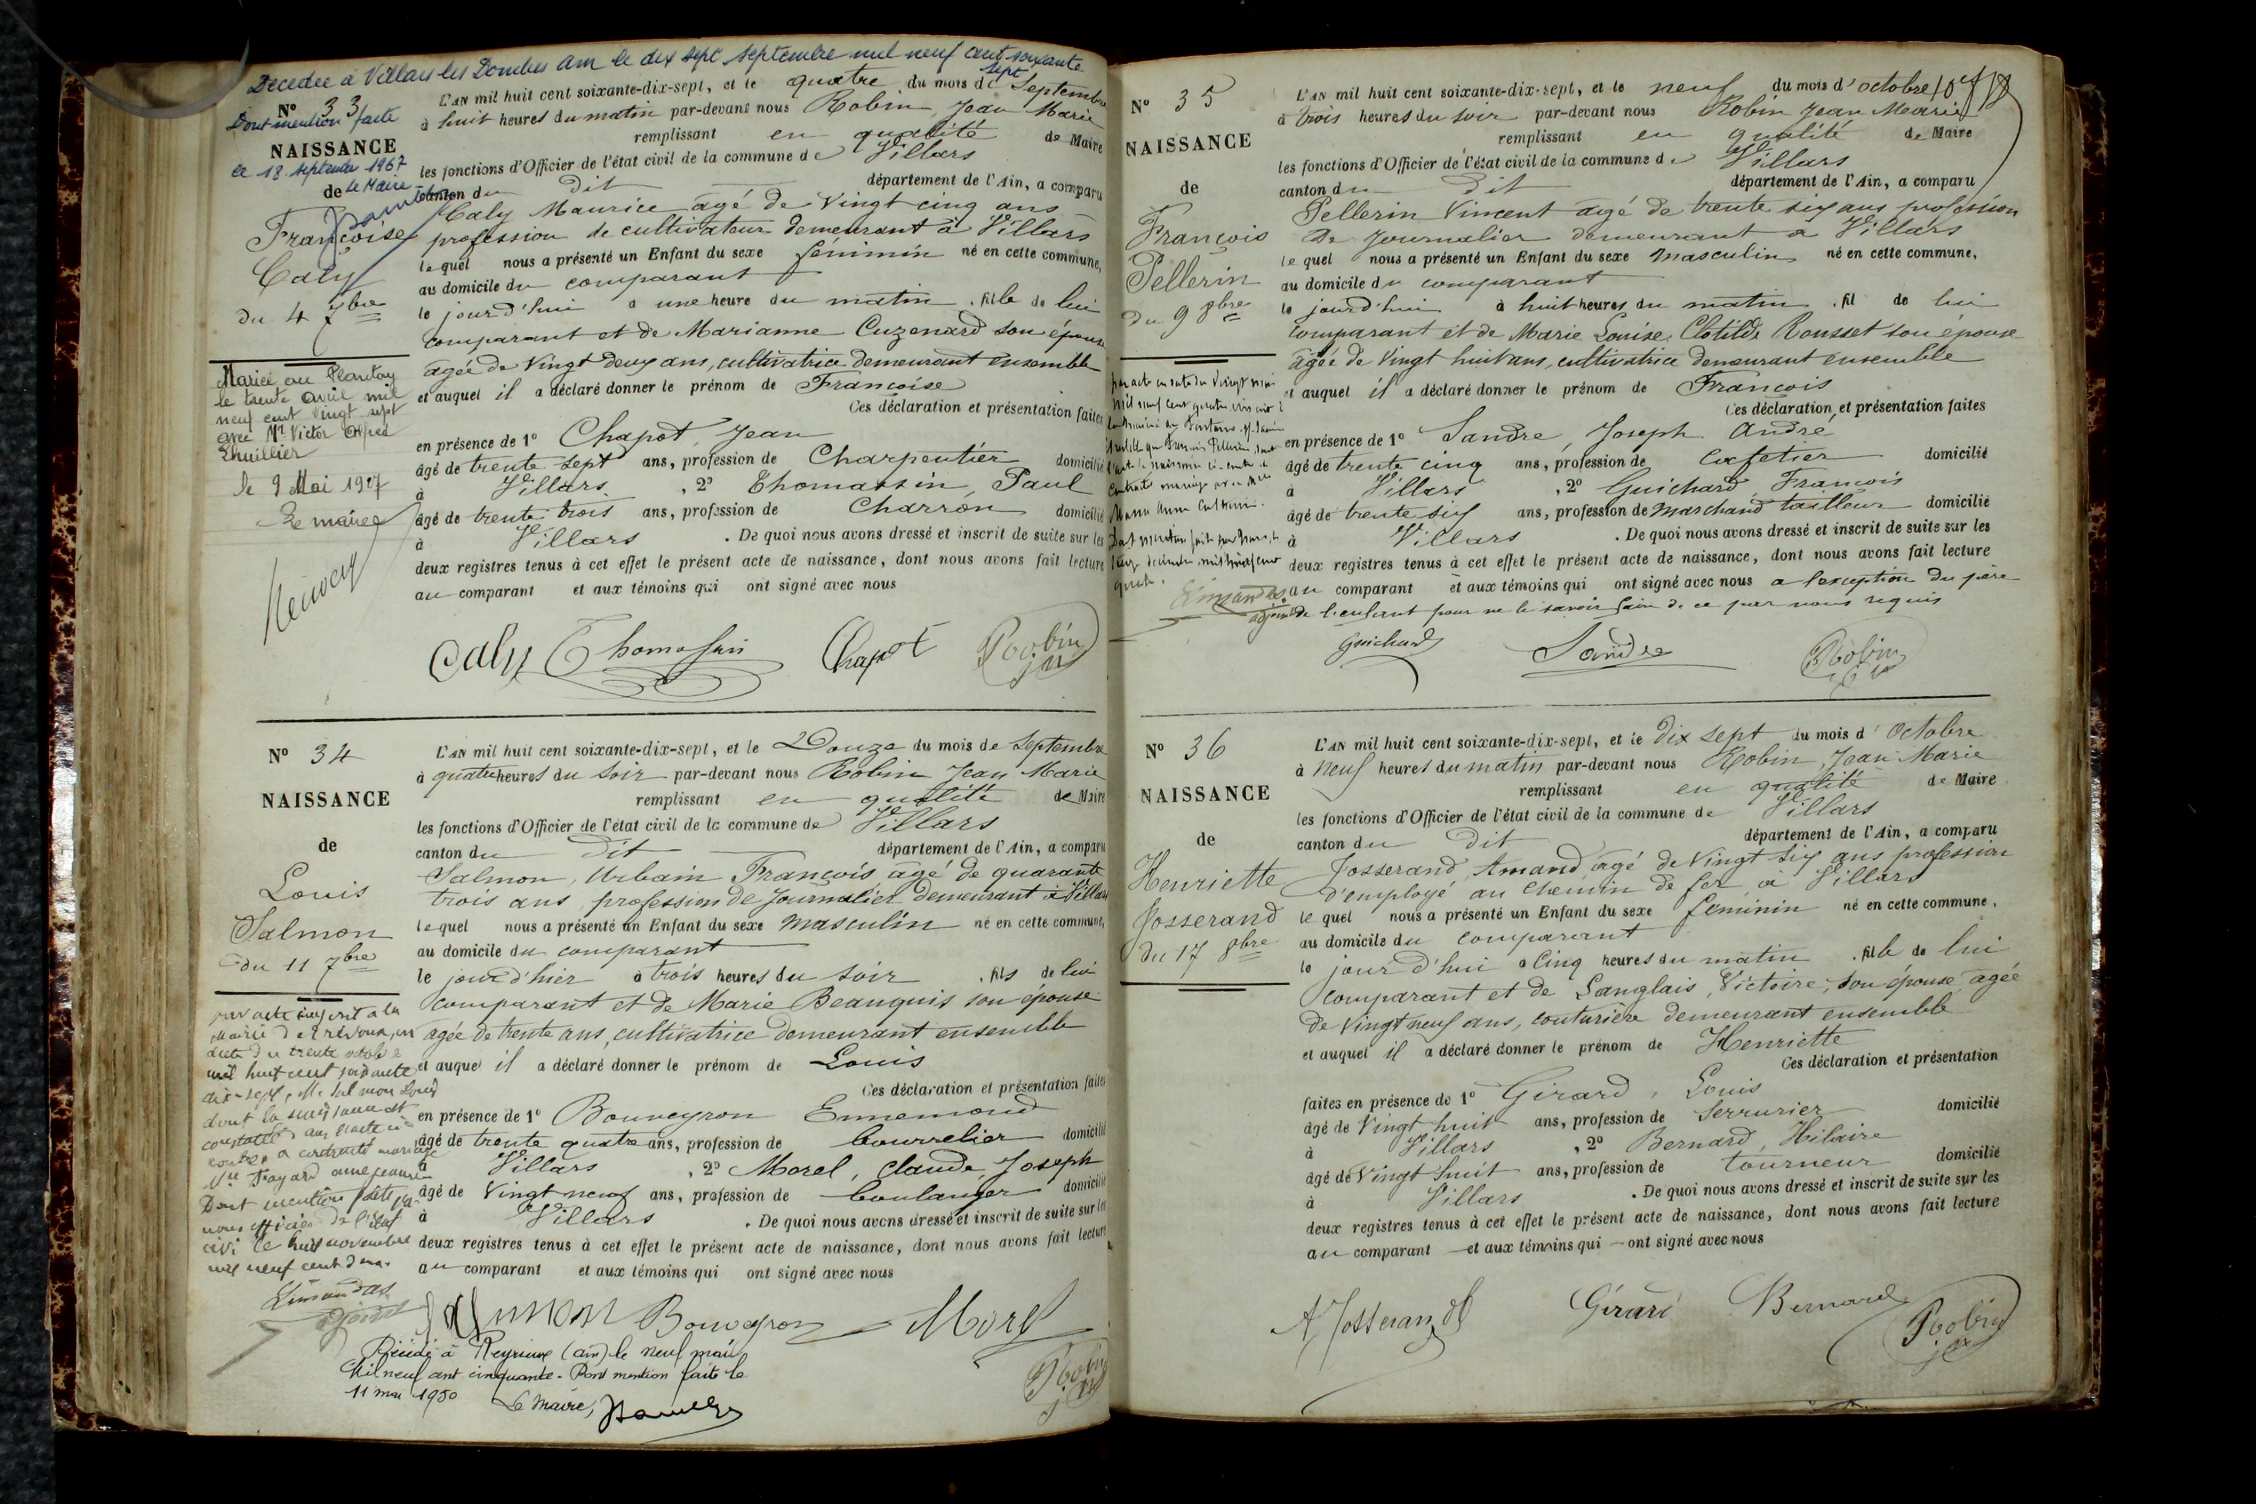 Décédée à Villars les Dombes Ain le dix sept septembre mil neuf cent soixante
sept
N° 33
Dont mention faite
NAISSANCE
le 18 septembre 1967
de Le Maire
Françoise
Caly
du 4 7bre
Mariée au Plantay
le trente avril mil
neuf cent vingt sept
avec Mr Victor
Lhuillier
le 9 Mai 1927
Le maire
L'AN mil huit cent soixante-dix-sept, et le quatre du mois de Septembre
à huit heures du matin par-devant nous Robin, Jean Marie
remplissant en qualité de Maire
les fonctions d'Officier de l'état civil de la commune de Villars
canton du dit département de l'Ain, a comparu
Caly Maurice agé de Vingt cinq ans
profession de cultivateur demeurant à Villars
lequel nous a présenté un Enfant du sexe féminin né en cette commune,
au domicile du comparant
le jourd'hui à une heure du matin, fille de lui
comparant et de Marianne Cuzenard son épouse
agée de Vingt deux ans, cultivatrice demeurant ensemble
et auquel il a déclaré donner le prénom de Françoise
Ces déclaration et présentation faites
en présence de 1° Chapot, Jean
âgé de trente sept ans, profession de Charpentier domicilié
à Villars, 2° Thomassin, Paul
âgé de trente trois ans, profession de Charron domicilié
à Villars. De quoi nous avons dressé et inscrit de suite sur les
deux registres tenus à cet effet le présent acte de naissance, dont nous avons fait lecture
au comparant et aux témoins qui ont signé avec nous
Caly Thomassin Chapot Robin
N° 34
NAISSANCE
de
Louis
Salmon
du 11 7bre
par acte inscrit à la
mairie de Trévoux, en
date du trente octobre
mil huit cent soixante
dix-sept, Mr Salmon Louis
dont la naissance est
constatée dans l'acte ci-
contre a contracté mariage
Fayard
Dont mention faite par
nous officier de l'état
civil le huit novembre
mil neuf cent
Limandas
adjoint
L'AN mil huit cent soixante-dix-sept, et le Douze du mois de Septembre
à quatre heures du soir par-devant nous Robin Jean Marie
remplissant en qualité de Maire
les fonctions d'Officier de l'état civil de la commune de Villars
canton du dit département de l'Ain, a comparu
Salmon, Urbain François agé de quarante
trois ans profession de Journalier demeurant à Villars
lequel nous a présenté un Enfant du sexe masculin né en cette commune,
au domicile du comparant
le jour d'hier à trois heures du soir, fils de lui
comparant et de Marie Beauquis son épouse
agée de trente ans, cultivatrice demeurant ensemble
et auquel il a déclaré donner le prénom de Louis
Ces déclaration et présentation faites
en présence de 1° Bouveyron Ennemond
âgé de trente quatre ans, profession de bourrelier domicilié
à Villars, 2° Morel, Claude, Joseph
âgé de Vingt neuf ans, profession de boulanger domicilié
à Villars. De quoi nous avons dressé et inscrit de suite sur les
deux registres tenus à cet effet le présent acte de naissance, dont nous avons fait lecture
au comparant et aux témoins qui ont signé avec nous
Salmon Bouveyron Morel
Robin
Décédé à Reyrieux (Ain) le neuf mai
Mil neuf cent cinquante. Dont mention faite le
11 mai 1950 Le Maire,
N° 35
NAISSANCE
de
François
Pellerin
du 9 8bre
Limandas
adjoint
L'AN mil huit cent soixante-dix-sept, et le neuf du mois d'octobre
à trois heures du soir par-devant nous Robin Jean Marie
remplissant en qualité de Maire
les fonctions d'Officier de l'état civil de la commune de Villars
canton du dit département de l'Ain, a comparu
Pellerin Vincent agé de trente six ans profession
de journalier demeurant à Villars
lequel nous a présenté un Enfant du sexe masculin né en cette commune,
au domicile du comparant
le jourd'hui à huit heures du matin, fil de lui
comparant et de Marie Louise, Clotilde Rousset son épouse
agée de Vingt huit ans, cultivatrice demeurant ensemble
et auquel il a déclaré donner le prénom de François
Ces déclaration et présentation faites
en présence de 1° Sandre, Joseph André
âgé de trente cinq ans, profession de cafetier domicilié
à Villars, 2° Guichard, François
âgé de trente six ans, profession de marchand tailleur domicilié
à Villars. De quoi nous avons dressé et inscrit de suite sur les
deux registres tenus à cet effet le présent acte de naissance, dont nous avons fait lecture
au comparant et aux témoins qui ont signé avec nous a l'exception du père
de l'enfant pour ne le savoir faire de ce par nous requis
Guichard Sandre Robin
N° 36
NAISSANCE
de
Henriette
Josserand
du 17 8bre
L'AN mil huit cent soixante-dix-sept, et le Dix sept du mois d'Octobre
à Neuf heures du matin par-devant nous Robin, Jean Marie
remplissant en qualité de Maire
les fonctions d'Officier de l'état civil de la commune de Villars
canton du dit département de l'Ain, a comparu
Josserand, Amand, agé de Vingt six ans profession
d'employé au Chemin de fer à Villars
lequel nous a présenté un Enfant du sexe féminin né en cette commune,
au domicile du comparant
le jour d'hui à Cinq heures du matin, fille de lui
comparant et de Langlais, Victoire, son épouse agée
de Vingt neuf ans, couturière demeurant ensemble
et auquel il a déclaré donner le prénom de Henriette
Ces déclaration et présentation
faites en présence de 1° Girard, Louis
âgé de Vingt huit ans, profession de Serrurier domicilié
à Villars, 2° Bernard, Hilaire
âgé de Vingt huit ans, profession de tourneur domicilié
à Villars. De quoi nous avons dressé et inscrit de suite sur les
deux registres tenus à cet effet le présent acte de naissance, dont nous avons fait lecture
au comparant et aux témoins qui ont signé avec nous
A. Josserand Girard Bernard Robin